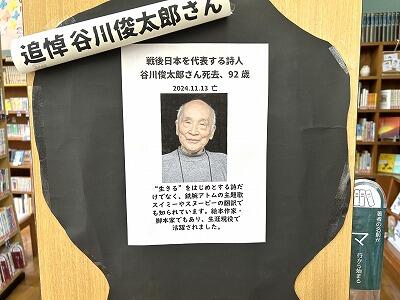 追悼 谷川俊太郎さん
戦後日本を代表する詩人
谷川俊太郎さん死去、92 歳
2024.11.13 亡
“生きる”をはじめとする詩だ
けでなく、鉄腕アトムの主題歌
スイミーやスヌーピーの翻訳で
も知られています。絵本作家・
脚本家でもあり、生涯現役で
活躍されました。
著者の名前が
マ
行から始まる